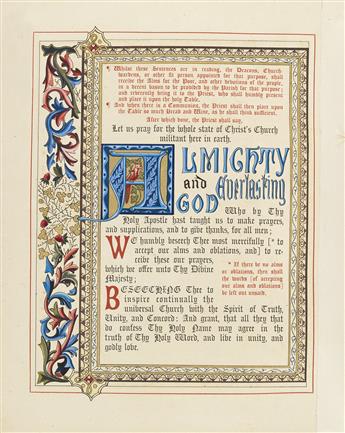 ¶ Whilst these Sentences are in reading, the Deacons, Church-
wardens, or other fit person appointed for that purpose, shall
receive the Alms for the Poor, and other devotions of the people,
in a decent bason to be provided by the Parish for that purpose;
and reverently bring it to the Priest, who shall humbly present
and place it upon the holy Table.
¶ And when there is a Communion, the Priest shall then place upon
the Table so much Bread and Wine, as he shall think sufficient.
After which done, the Priest shall say,
Let us pray for the whole state of Christ's Church
militant here in earth.
ALMIGHTY
and Everlasting
GOD Who by Thy
Holy Apostle hast taught us to make prayers,
and supplications, and to give thanks, for all men;
We humbly beseech Thee most mercifully [* to
accept our alms and oblations, and] to re-
ceive these our prayers,
which we offer unto Thy Divine
Majesty;
* If there be no alms
or oblations, then shall
the words [of accepting
our alms and oblations]
be left out unsaid.
BESEECHING Thee to
inspire continually the
universal Church with the Spirit of Truth,
Unity, and Concord: And grant, that all they that
do confess Thy Holy Name may agree in the
truth of Thy Holy Word, and live in unity, and
godly love.